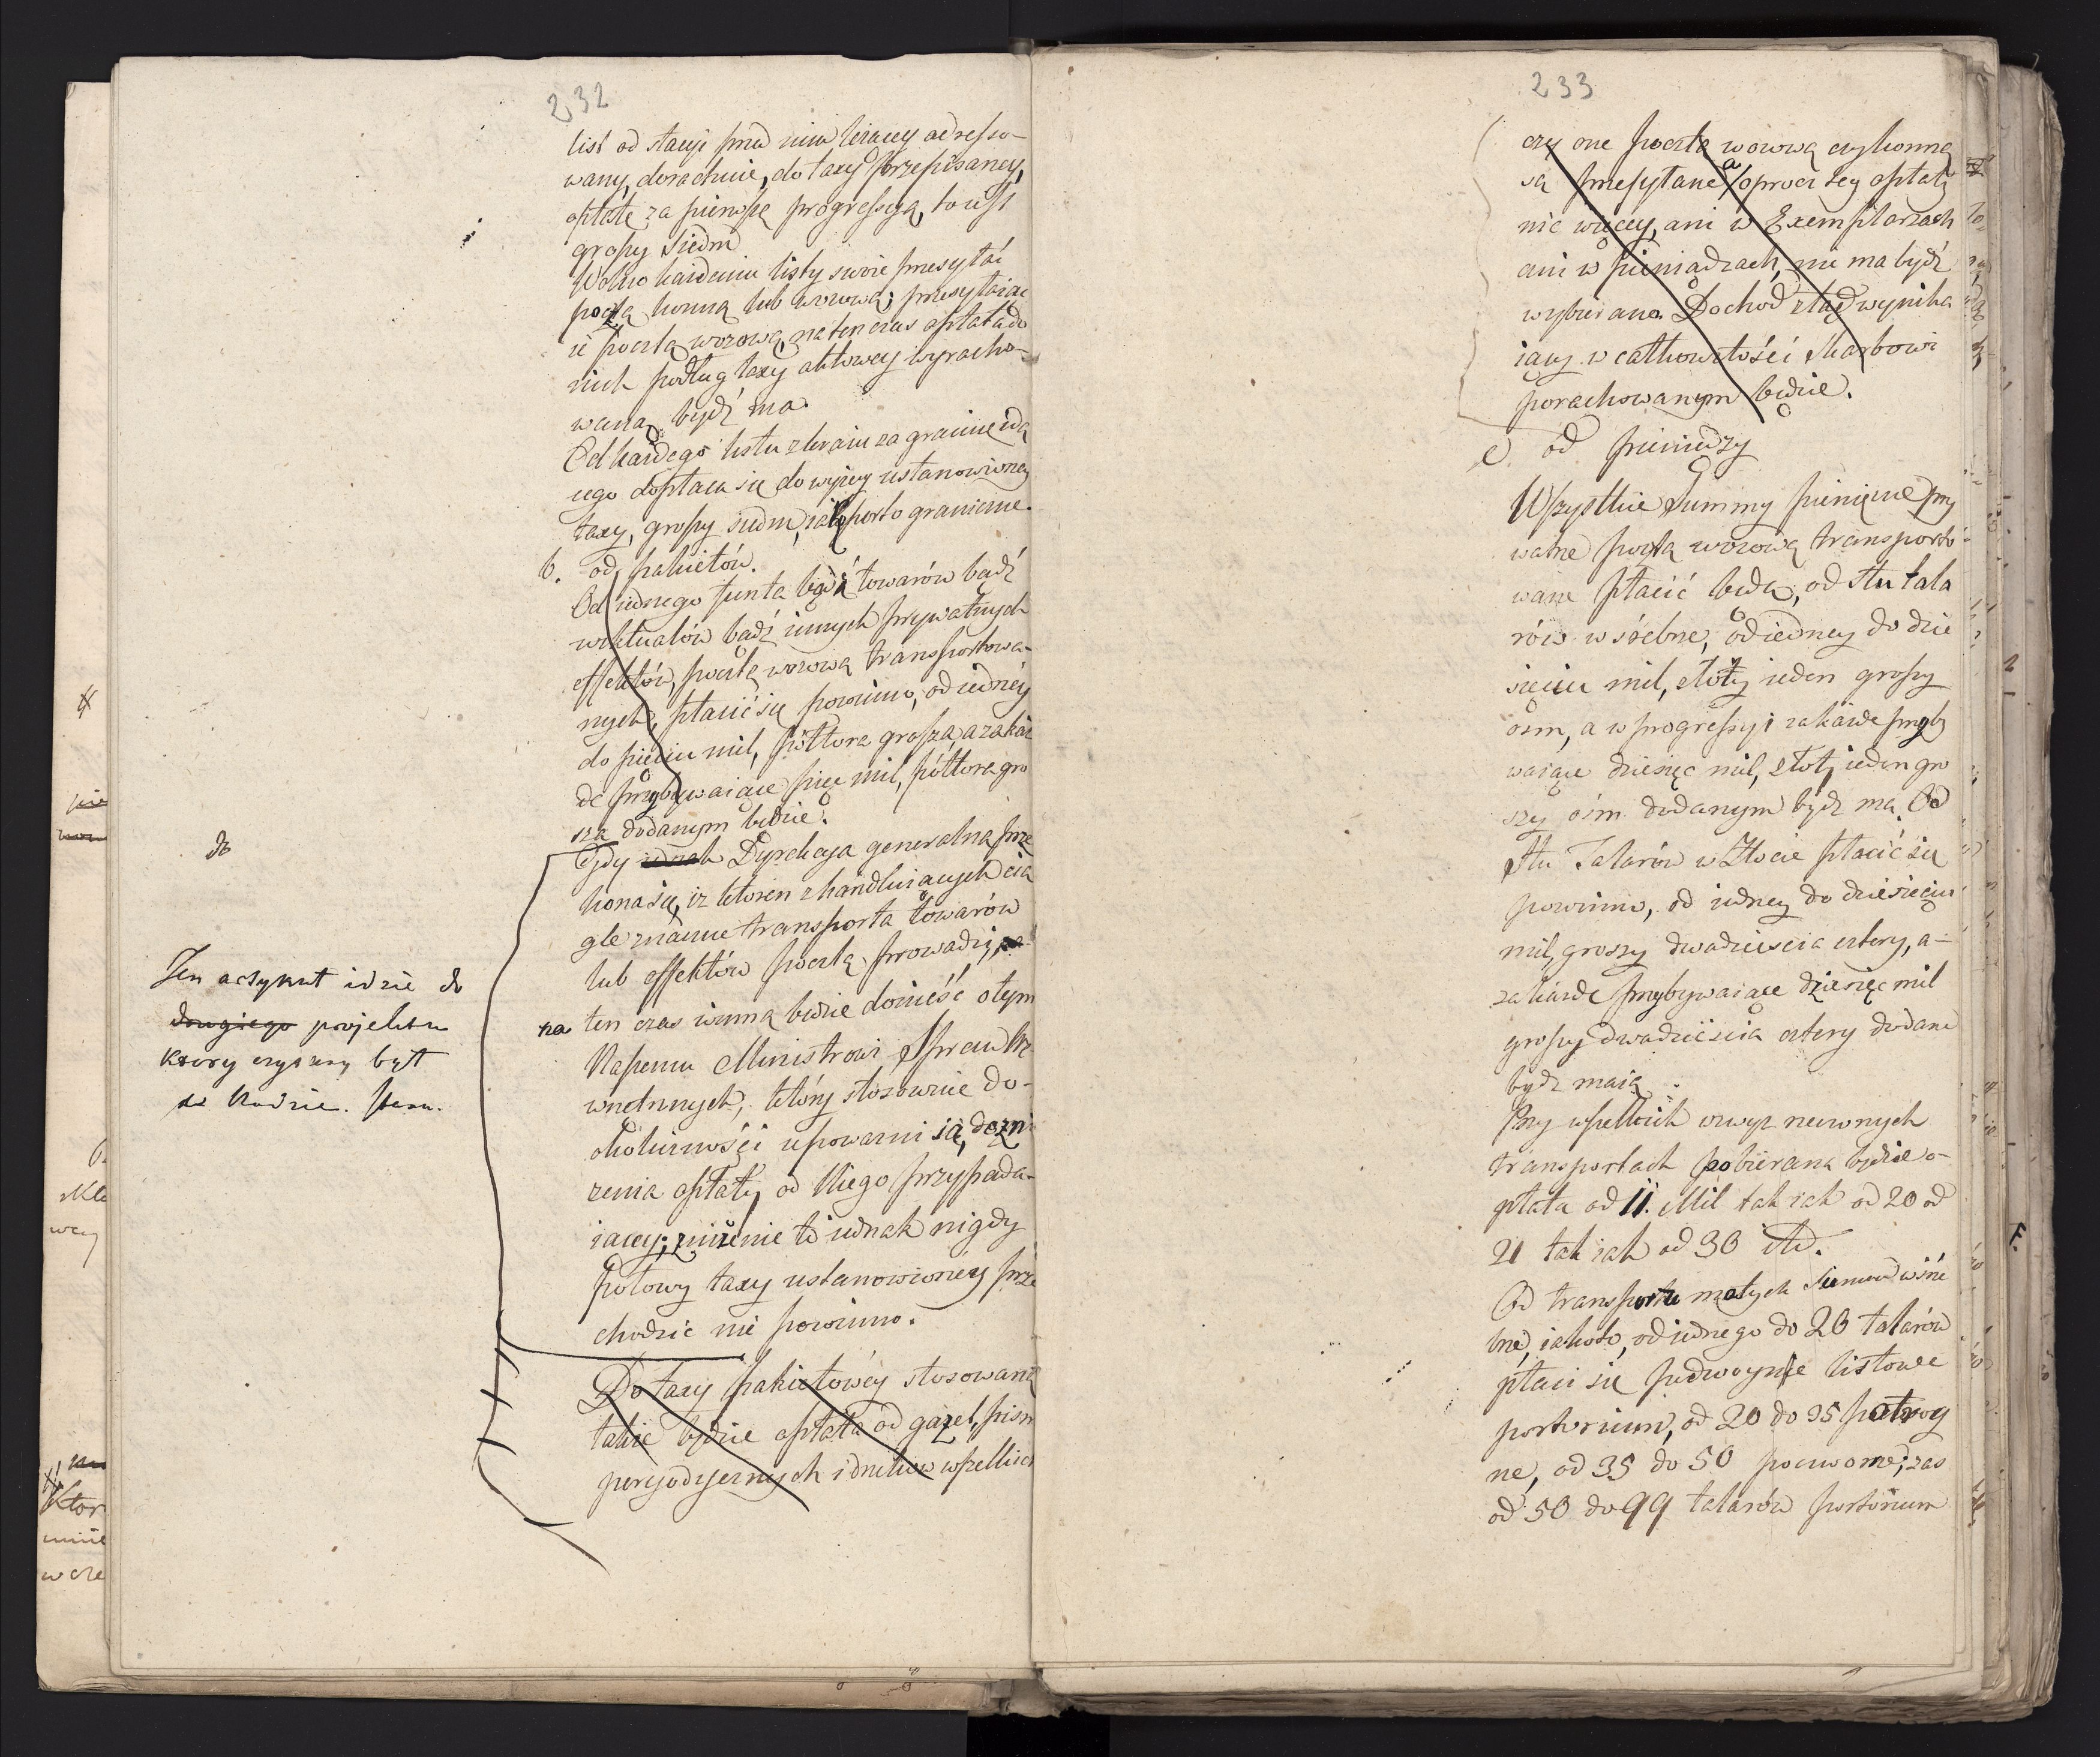 232
list od stacyi przed nim leżącey adresso-
wany, dorachuie, do taxy przepisaney,
opłatę za pierwszę progressyą, to iest
groszy siedm
Wolno każdemu listy swoie przesyłać
pocztą konną lub wozową; przesyłaiąc
ie pocztą wozową, natenczas opłata do
nich podług taxy aktowey wyracho-
waną bydź ma.
Od każdego listu z kraiu za granicę idą
cego dopłaca się do wyżey ustanowioney
taxy, groszy siedm, iako porto graniczne.
b. od pakietów.
Od iednego funta bądź towarów bądź
wiktuałów bądź innych prywatnych
effektów, pocztą wozową transportowa-
nych, płacić się powinno, od iedney
do pięciu mil, półtora grosza, a za każ
de przybywaiące pięć mil, półtora gro
sza dodanym będzie.
Gdy iednak Dyrekcya generalna prze
kona się, iż któren z handluiących cią
gle znaczne transporta towarów
lub effektów pocztą prowadzi,
na ten czas winną będzie donieść o tym
Naszemu Ministrowi Spraw We-
wnętrznych, który stosownie do-
okoliczności upoważni ią, do zni
żenia opłaty od Niego przypada-
iącey; zniżenie to iednak nigdy
połowy taxy ustanowioney prze
chodzić nie powinno.
Do taxy pakietowey stosowaną
także będzie opłata od gazet, pism
peryodycznych i druków wszelkich
do
Ten artykuł idzie do
drugiego projektu
który czytany był
na Radzie.
233
czy one pocztą wozową czy konną
są przesyłane a oprócz tey opłaty
nic więcey, ani w Exemplarzach
ani w pieniądzach, nie ma bydź
wybierano. Dochód ztąd wynika
iący w całkowitości Skarbowi
porachowanym będzie.
c. od pieniędzy
Wszystkie Summy pieniężne pry
watne pocztą wozową transporto
wane płacić będą, od stu tala
rów w śrebrze, od iedney do dzie
sięciu mil, złoty ieden groszy
ośm, a w progressyi za każde przyby
waiące dziesięć mil, złoty ieden gro
szy ośm dodanym bydź ma. Od
Stu Talarów w Złocie płacić się
powinno, od iedney do dziesięciu
mil, groszy dwadzieścia cztery, a-
za każde przybywaiące dziesięć mil
groszy dwadzieścia cztery dodane
bydź maią.
Przy wszelkich wwyż rzeczonych
transportach pobierana będzie o-
płata od 11. Mil tak iak od 20 od
21 tak iak od 30 itd.
Od transportu małych Summ w śre
brze, iakoto, od iednego do 20 talarów
płaci się podwóynie listowe
portorium, od 20 do 35 potróy
ne, od 35 do 50 poczworne; zaś
od 50 do 99 talarów portorium